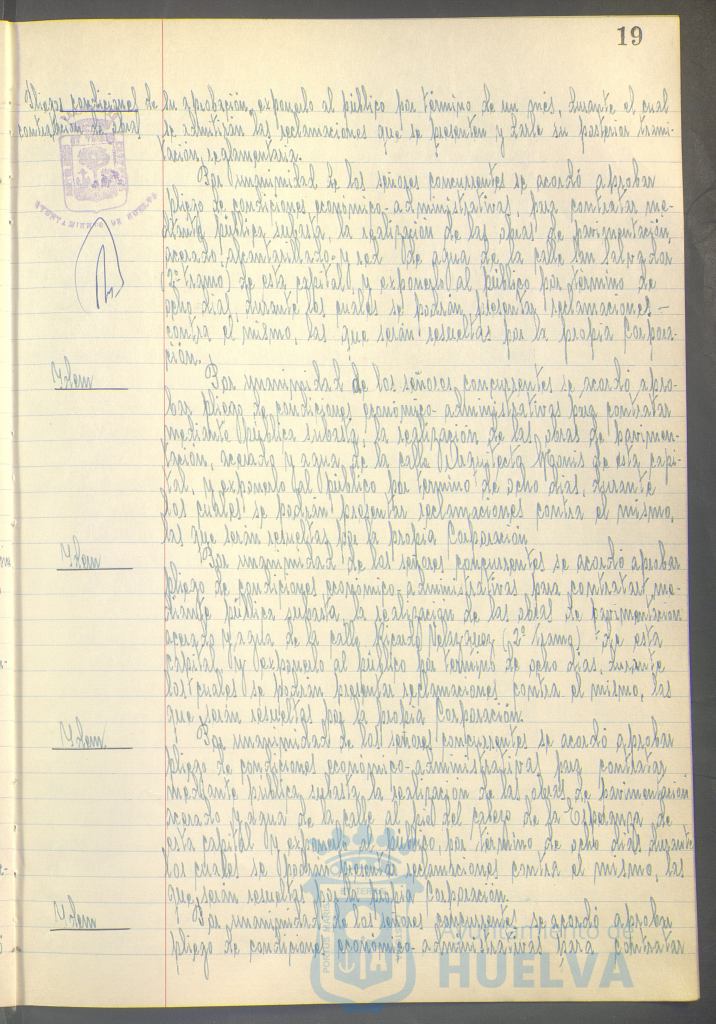 19
Pliegos condicional de
contratación de obras
su aprobación, exponerlo al público por término de un mes, durante el cual
se admitirán las reclamaciones que se presenten y darle su posterior trami-
tación reglamentaria.
Por unanimidad de los señores concurrentes se acordó aprobar
pliego de condiciones económico-administrativas, para contratar me-
diante pública subasta, la realización de las obras de pavimentación,
acerado, alcantarillado y red de agua de la calle San Salvador
(2º tramo) de esta capital, y exponerlo al público por término de
ocho días, durante los cuales se podrán presentar reclamaciones
contra el mismo, las que serán resueltas por la propia Corpora-
ción.
Idem
Por unanimidad de los señores concurrentes se acordó apro-
bar pliego de condiciones económico-administrativas para contratar
mediante pública subasta, la realización de las obras de pavimen-
tación, acerado y agua de la calle Arquitecto Monís de esta capi-
tal, y exponerlo al público por término de ocho días, durante
los cuales se podrán presentar reclamaciones contra el mismo,
las que serán resueltas por la propia Corporación.
Idem
Por unanimidad de los señores concurrentes se acordó aprobar
pliego de condiciones económico-administrativas para contratar me-
diante pública subasta, la realización de las obras de pavimentación
acerado y agua de la calle Ricardo Velázquez (2º tramo) de esta
capital, y exponerlo al público por término de ocho días, durante
los cuales se podrán presentar reclamaciones contra el mismo, las
que serán resueltas por la propia Corporación.
Idem
Por unanimidad de los señores concurrentes se acordó aprobar
pliego de condiciones económico-administrativas para contratar
mediante pública subasta la realización de las obras de pavimentación
acerado y agua de la calle al pie del cabezo de la Esperanza de
esta capital y exponerlo al público, por término de ocho días durante
los cuales se podrán presentar reclamaciones contra el mismo, las
que serán resueltas por la propia Corporación.
Idem
Por unanimidad de los señores concurrentes se acordó aprobar
pliego de condiciones económico-administrativas para contratar
AYUNTAMIENTO DE HUELVA
Ayuntamiento de
HUELVA